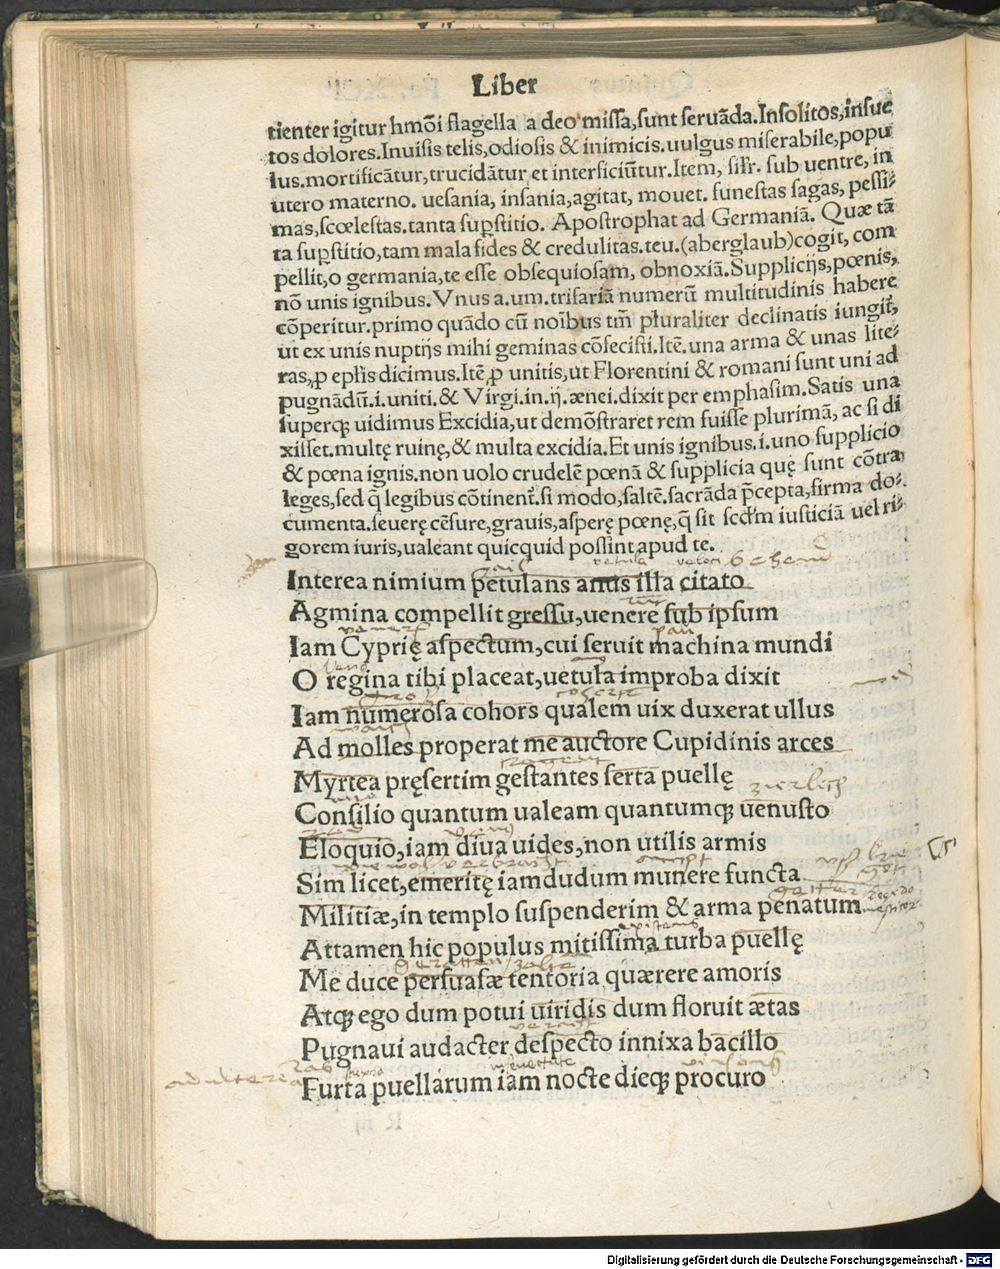 Liber
tienter igitur hmōi flagella a deo missa,sunt seruāda.Insolitos,insue
tos dolores.Inuisis telis,odiosis & inimicis.uulgus miserabile,popu
lus.mortificātur,trucidātur et interficiūtur.Item, sifr. sub uentre, in
utero materno. uesania, insania,agitat, mouet. funestas sagas, pessi-
mas,scœlestas.tanta suꝑstitio. Apostrophat ad Germaniā. Quæ tā
ta suꝑstitio,tam mala fides & credulitas.teu.(aberglaub)cogit, com
pellit,o germania,te esse obsequiosam, obnoxiā.Supplicijs,pœnis,
nō unis ignibus.Vnus a.um.trifariā numerū multitudinis habere
cōperitur.primo quādo cū noībus tm̄ pluraliter declinatis iungit,
ut ex unis nuptijs mihi geminas cōfecisti.Itē.una arma & unas lite-
ras,ꝓ epl̄is dicimus.Itē ꝓ unitis,ut Florentini & romani sunt uni ad
pugnādū.i.uniti.& Virgi.in.ij.ænei.dixit per emphasim.Satis una
superqꝫ uidimus Excidia,ut demōstraret rem fuisse plurimā, ac si di
xisset.multę ruinę,& multa excidia.Et unis ignibus.i.uno supplicio
& pœna ignis.non uolo crudelē pœnā & supplicia quę sunt cōtra
leges,sed q̄ legibus cōtinent᷑.si modo,saltē.sacrāda p̄cepta,firma do-
cumenta.seuerę cēsure,grauis,asperę pœnę,q̄ sit scd̄m iusticiā uel ri-
gorem iuris,ualeant quicquid possint apud te.
Interea nimium petulans anus illa citato
Agmina compellit gressu,uenere sub ipsum
Iam Cyprię aspectum,cui seruit machina mundi
O regina tibi placeat,uetula improba dixit
Iam numerosa cohors qualem uix duxerat ullus
Ad molles properat me auctore Cupidinis arces
Myrtea pręsertim gestantes serta puellę
zierlich
Consilio quantum ualeam quantumqꝫ uenusto
Eloquio,iam diua uides,non utilis armis
Sim licet,emeritę iamdudum munere functa
Militiæ,in templo suspenderim & arma penatum
Attamen hic populus mitissima turba puellę
Me duce persuasæ tentoria quærere amoris
Atqꝫ ego dum potui uiridis dum floruit ætas
Pugnaui audacter despecto innixa bacillo
Furta puellarum iam nocte dieqꝫ procuro
Digitalisierung gefördert durch die Deutsche Forschungsgemeinschaft - DFG